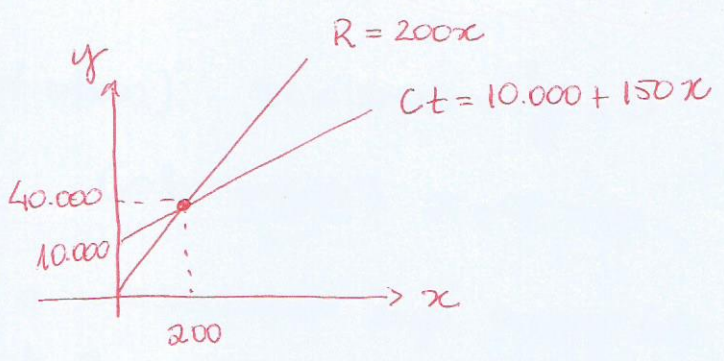 R = 200x
y
Ct = 10.000 + 150x
40.000
10.000
x
200